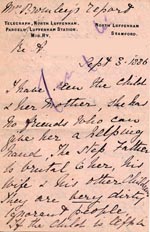 Mr Bromley's report
TELEGRAPH, NORTH LUFFENHAM.
PARCELS, LUFFENHAM STATION.
MID. RY.
NORTH LUFFENHAM
STAMFORD.
Sept 3. 1886
I have seen the child
& her Mother, she has
no friends who can
give her a helping
hand. The Step Father
is brutal to her, his
Wife & his other Children
they are very dirty
ignorant people
If the Child is